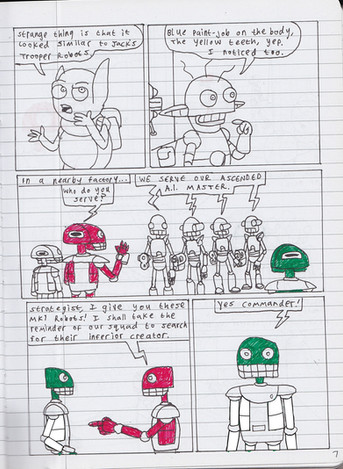 Strange thing is that it
looked similar to Jack's
Trooper Robots.
Blue paint-job on the body,
The yellow teeth, yep,
I noticed too.
In a nearby factory...
Who do you
serve?
WE SERVE OUR ASCENDED
A.I. MASTER.
Strategist, I give you these
MK1 Robots! I shall take the
reminder of our squad to search
for their inferior creator.
Yes commander!
7